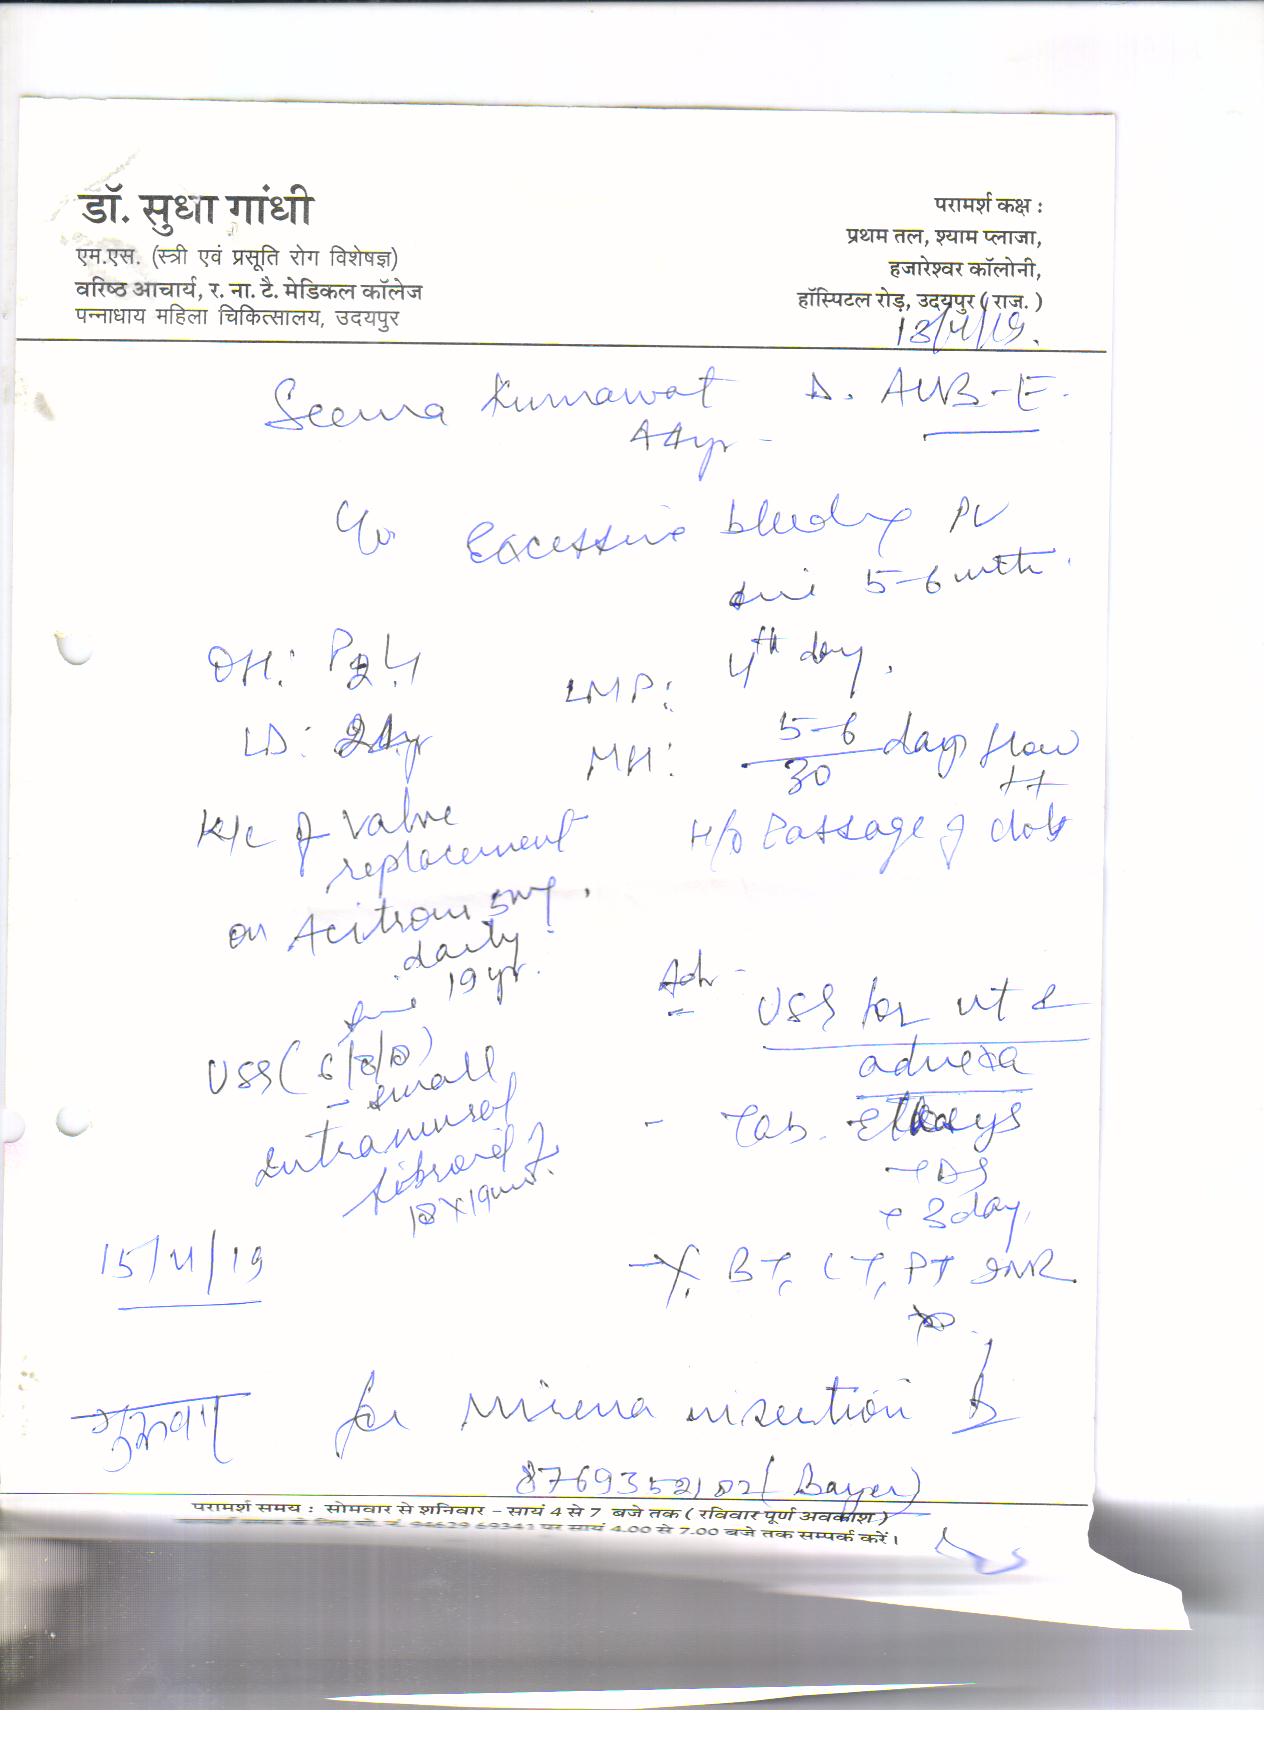 डॉ. सुधा गांधी
एम.एस. (स्त्री एवं प्रसूति रोग विशेषज्ञ)
वरिष्ठ आचार्य, र. ना. टै. मेडिकल कॉलेज
पन्नाधाय महिला चिकित्सालय, उदयपुर
परामर्श कक्ष :
प्रथम तल, श्याम प्लाजा,
हजारेश्वर कॉलोनी,
हॉस्पिटल रोड़, उदयपुर ( राज. )
13/4/19.
Seema Kumawat
44yr -
D. AUB-E.
C/o Excessive bleeding PV
5-6 mth.
OH:
LMP: 4th day.
LD: 24yr
MH: 5-6/30 days flow
++
K/c of valve
replacement
H/o Passage of clots
on Acitrom 5mg.
daily
19 yr.
Adv -
USS for ut &
adnexa
USS (
- small
intramural
fibroid of
18x19mm.
- Tab.
BD
x 3day,
BT, CT, PT INR
15/4/19
for Mirena insertion
8769352102 (Bayer)
परामर्श समय : सोमवार से शनिवार – सायं 4 से 7 बजे तक ( रविवार पूर्ण अवकाश )
94629 69341 पर सायं 4.00 से 7.00 बजे तक सम्पर्क करें।